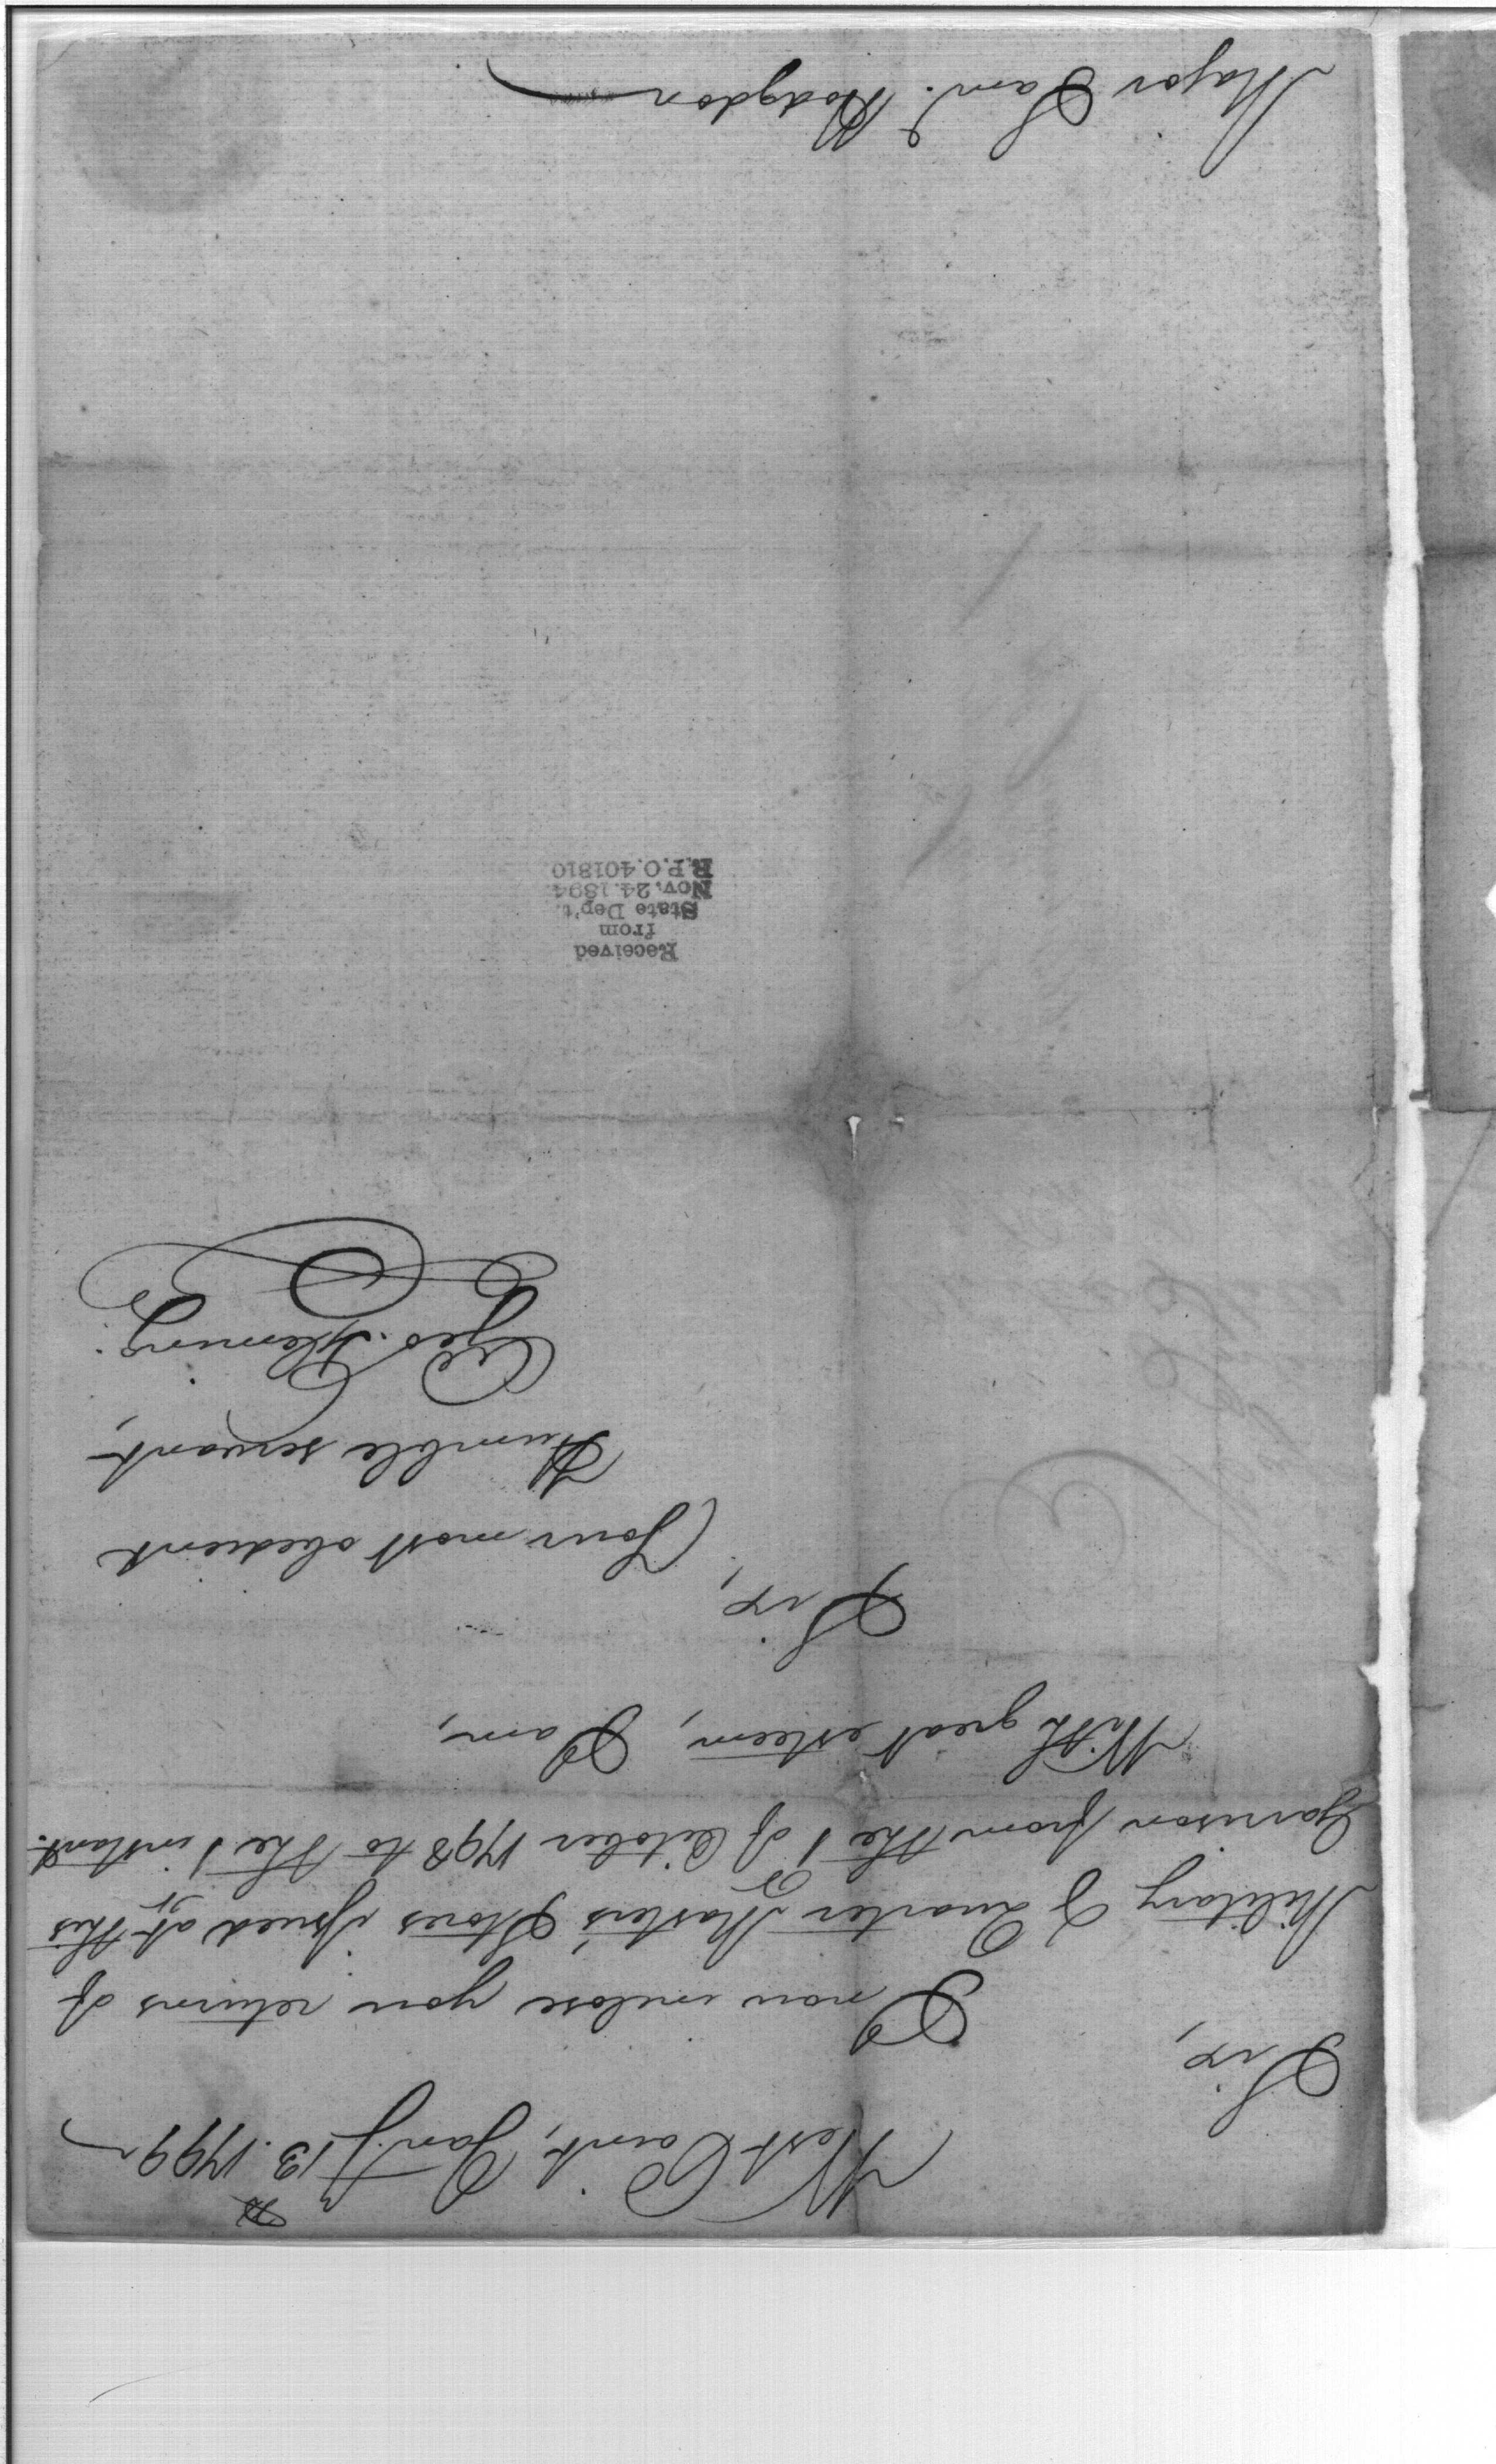 West Point, Jany. 13th. 1799
Sir,
I now inclose you returns of
Military & Quarter Master's Stores issued at this
Garrison from the 1st of October 1798 to the 1st instant.
With great esteem, I am,
Sir,
Your most obedient
Humble servant,
Geo. Fleming.
Received
from
State Dep't.
Nov. 24. 1894
R.P.O. 401810
Major Saml. Hodgdon